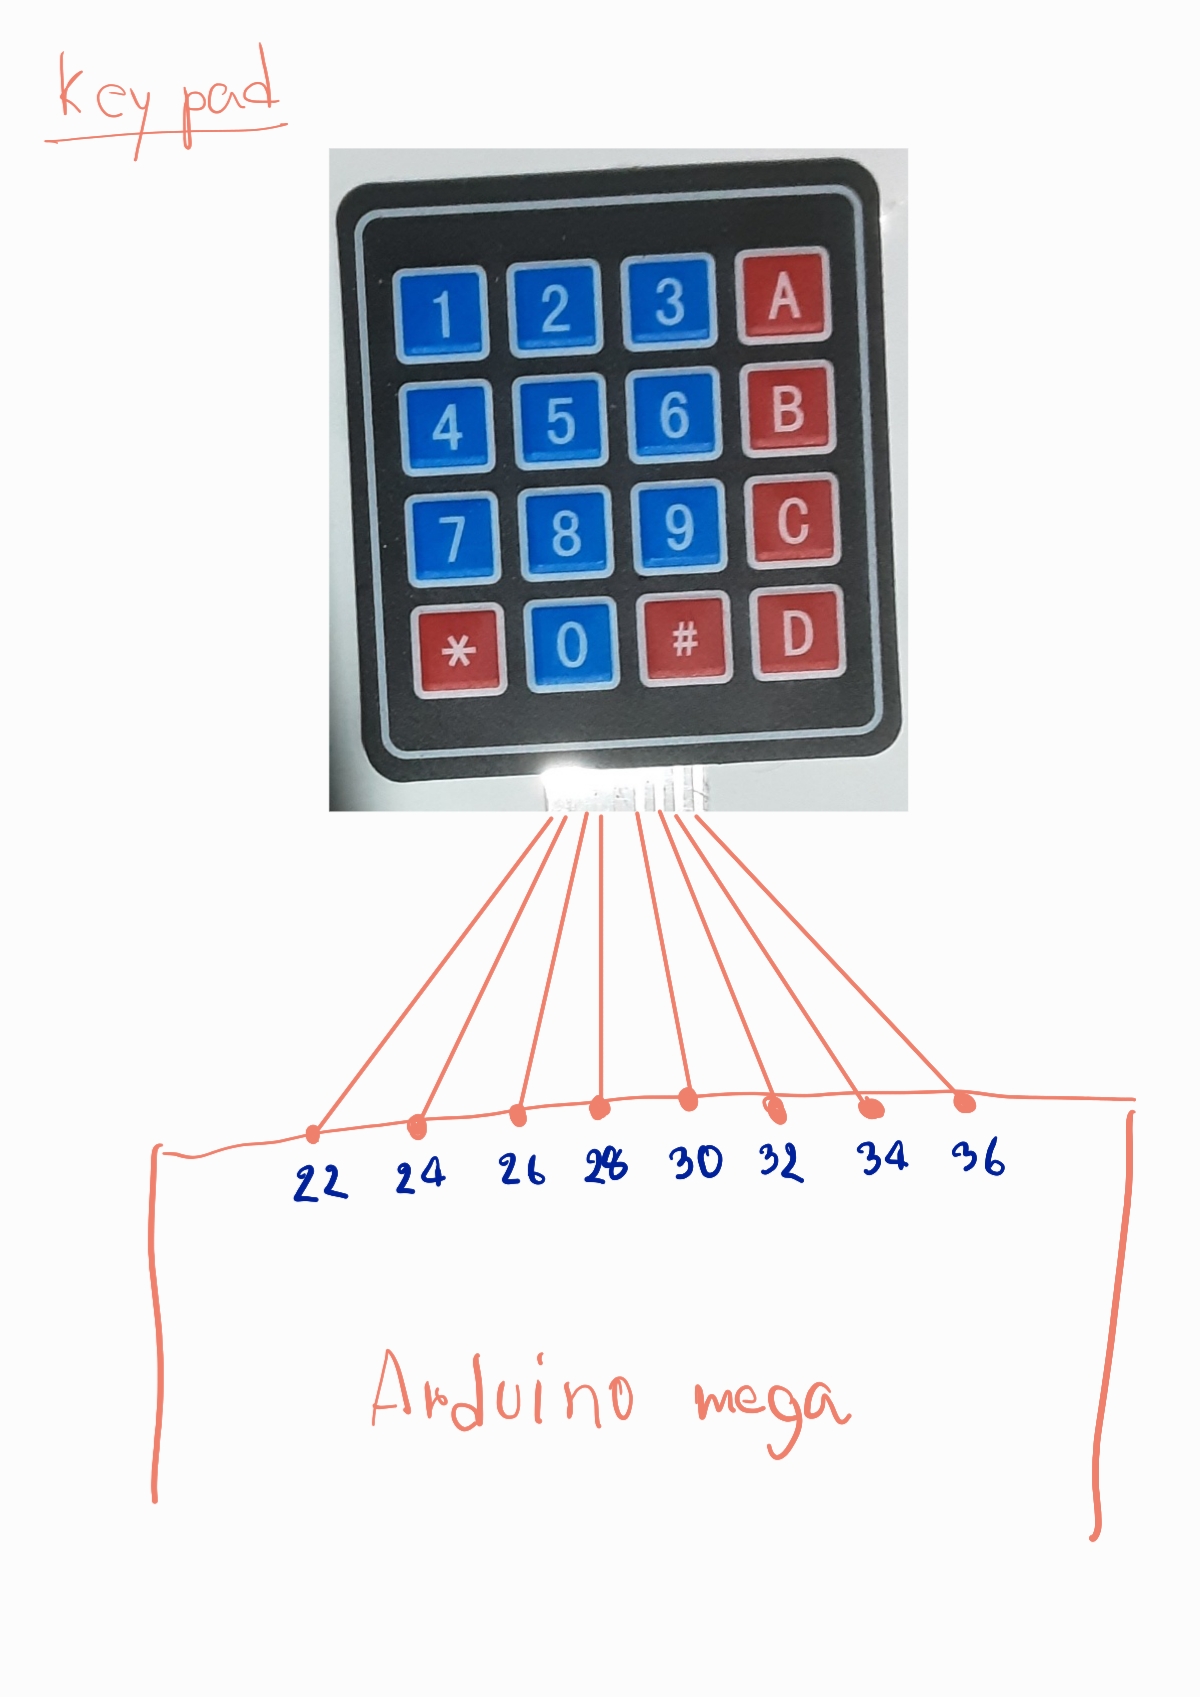 Key pad
1 2 3 A
4 5 6 B
7 8 9 C
* 0 # D
22 24 26 28 30 32 34 36
Arduino mega